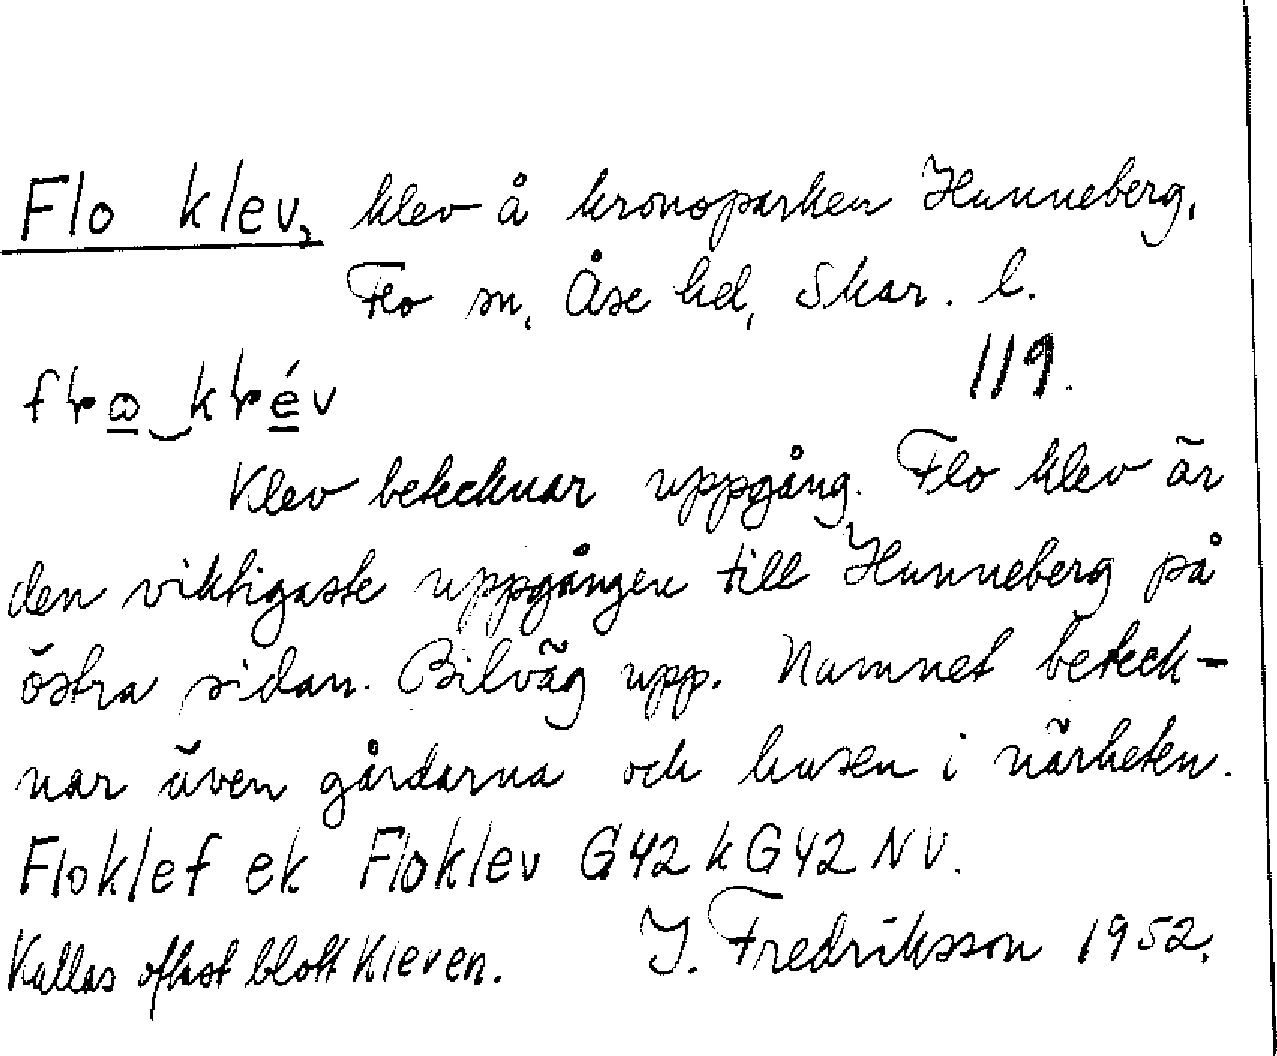 Flo klev, klev å kronoparken Hunneberg,
Flo sn, Åse hd, Skar. l.
119.
Klev betecknar uppgång. Flo klev är
den viktigaste uppgången till Hunneberg på
östra sidan. Bilväg upp. Namnet beteck-
nar även gårdarna och husen i närheten.
Floklef ek Floklev G42 k G42 NV.
Kallas oftast blott Kleven. J. Fredriksson 1952.